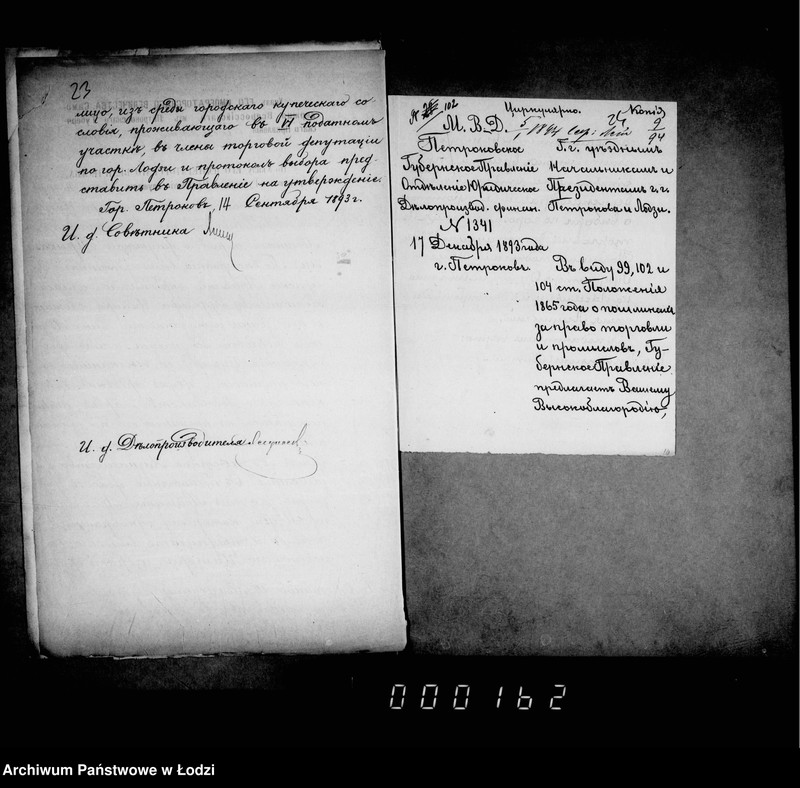 23
лицо, изъ среды городскаго купеческаго со-
словія, проживающаго въ VI податномъ
участкѣ, въ члены торговой депутаціи
по гор. Лодзи и протоколъ выбора пред-
ставить въ Правленіе на утвержденіе.
Гор. Петроковъ, 14 Сентября 1893 г.
И. д. Совѣтника
И. д. Дѣлопроизводителя
102
Циркулярно.
Копія
24
М. В. Д.
5/I 1894
9/94
Петроковское
Губернское Правленіе
Отдѣленіе Юридическое
Дѣлопроизвод. финан.
N 1341
17 Декабря 1893 года
г. Петроковъ.
Г.г. уѣзднымъ
Начальникамъ и
Президентамъ г.г.
Петрокова и Лодзи.
Въ виду 99, 102 и
104 ст. Положенія
1865 года о пошлинахъ
за право торговли
и промысловъ, Гу-
бернское Правленіе
предлагаетъ Вашему
Высокоблагородію,
000162
Archiwum Państwowe w Łodzi